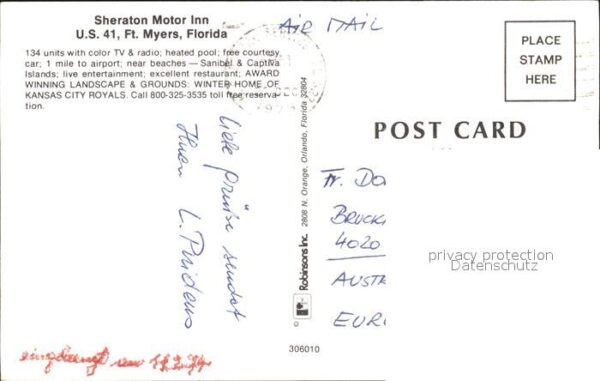 Sheraton Motor Inn
U.S. 41, Ft. Myers, Florida
134 units with color TV & radio; heated pool; free courtesy
car; 1 mile to airport; near beaches — Sanibel & Captiva
Islands; live entertainment; excellent restaurant; AWARD
WINNING LANDSCAPE & GROUNDS: WINTER HOME OF
KANSAS CITY ROYALS. Call 800-325-3535 toll free reserva-
tion.
AIR MAIL
PLACE
STAMP
HERE
POST CARD
Liebe Grüße sendet
Ihnen L.
Robinsons Inc. 2808 N. Orange, Orlando, Florida 32804
Fr. Do
BRUCK
4020
AUSTR
EURO
privacy protection
Datenschutz
306010